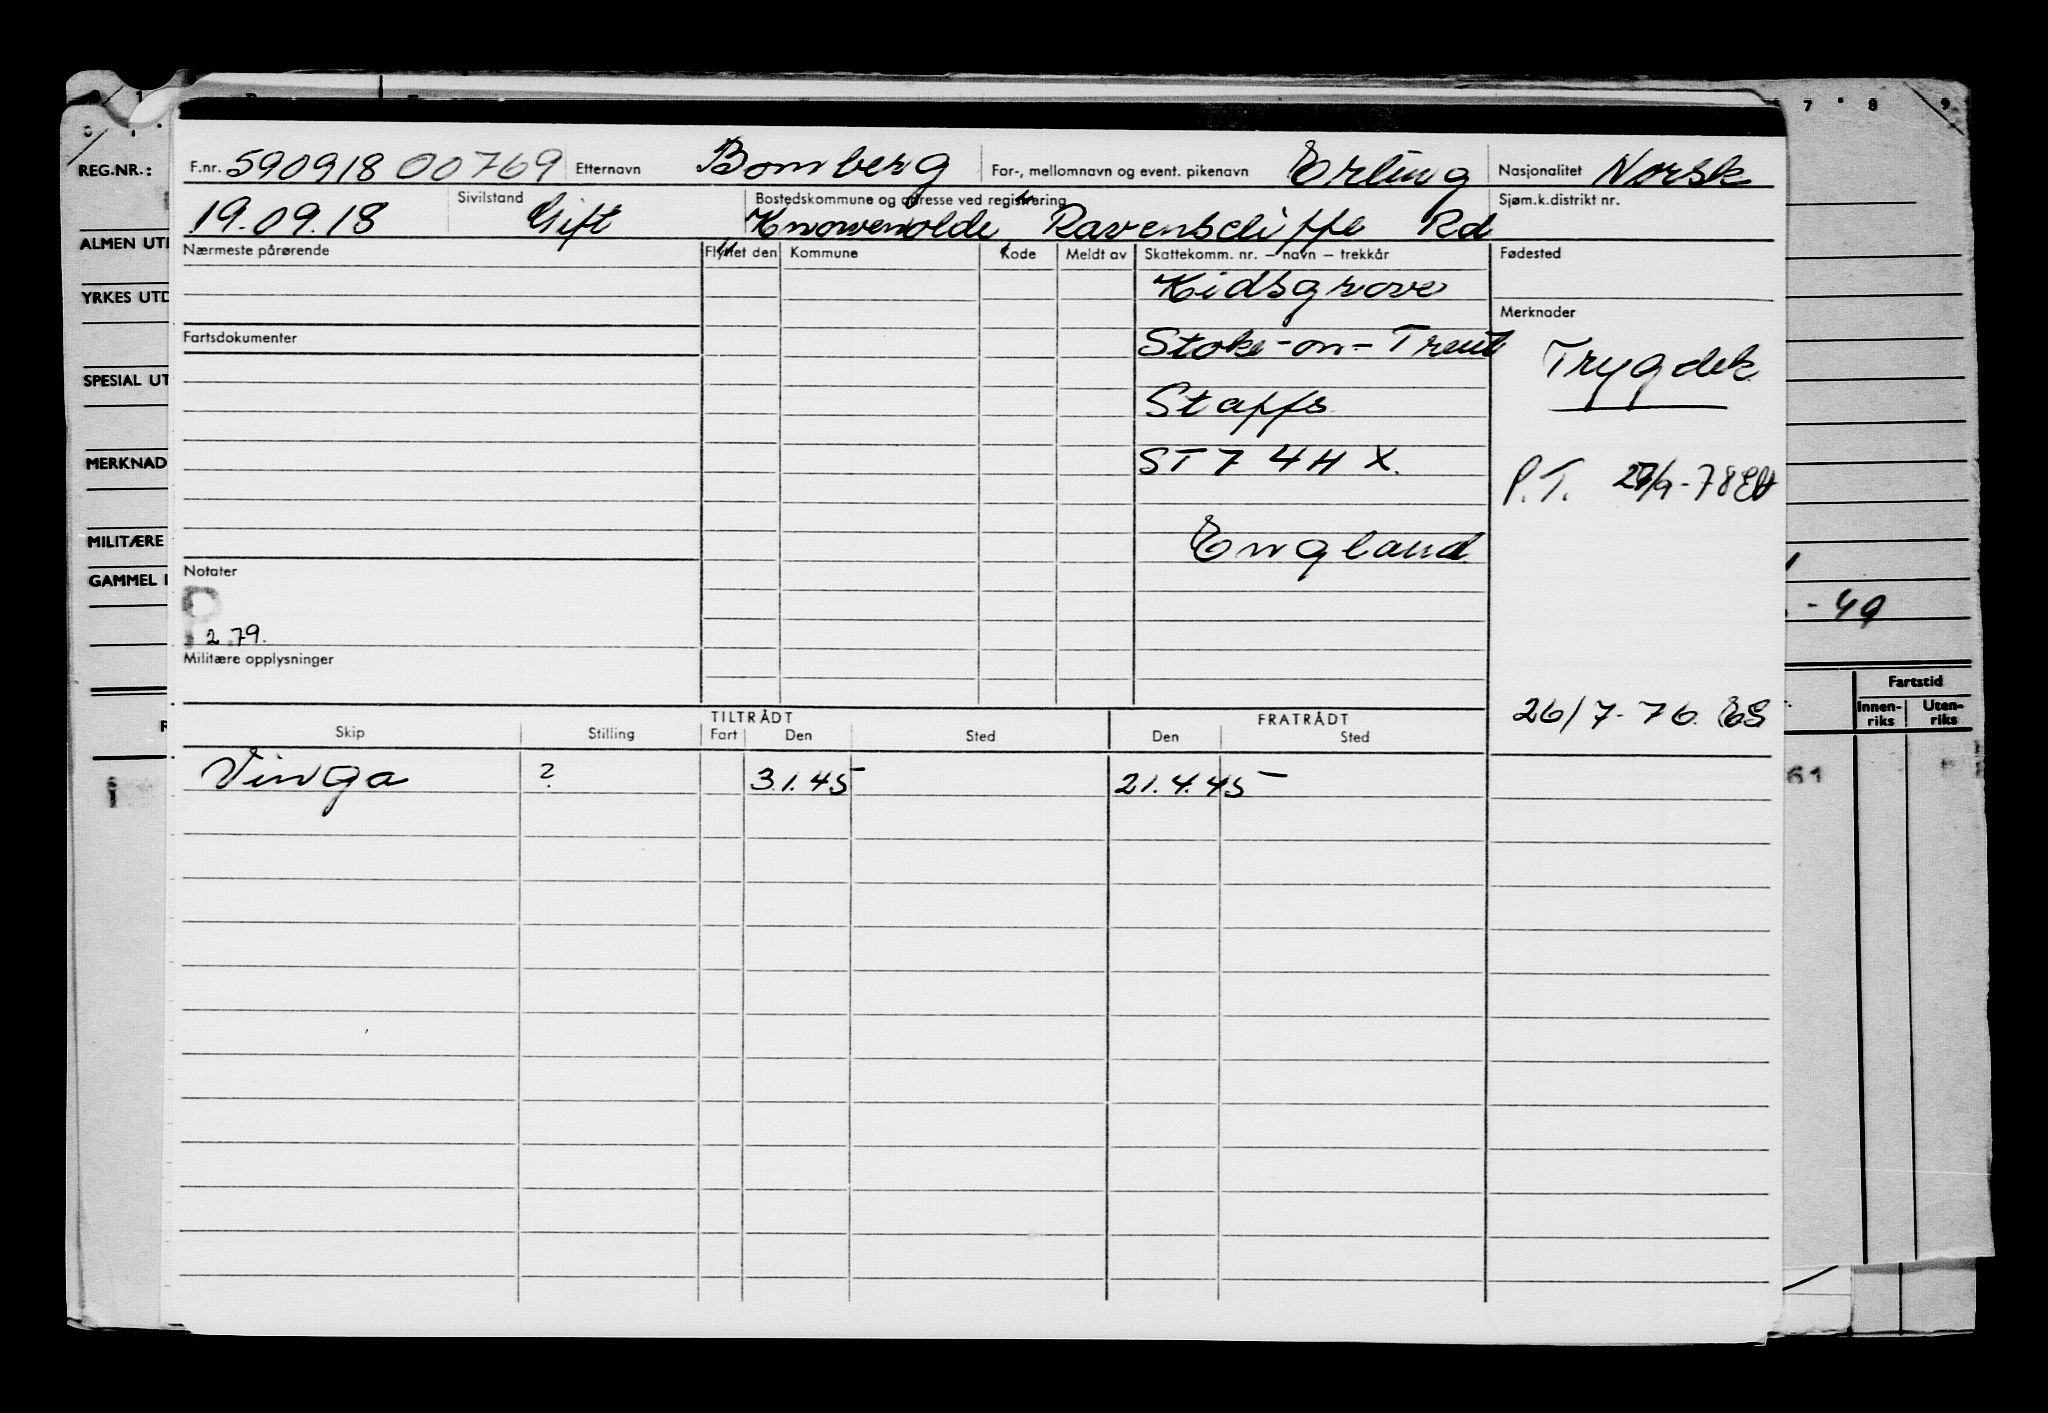 7 8 9
REG.NR.:
F.nr. 590918 00769 Etternavn Bomberg For-, mellomnavn og event. pikenavn Erling Nasjonalitet Norsk
19.09.18 Sivilstand Gift Bostedskommune og adresse ved registrering "Knowenolde" Ravenscliffe Rd Sjøm.k.distrikt nr.
ALMEN UTD
Nærmeste pårørende Flyttet den Kommune Kode Meldt av Skattekomm. nr. – navn – trekkår Fødested
Kidsgrove
YRKES UTD
Merknader
Fartsdokumenter Stoke-on-Trent
Trygdek
SPESIAL UT
Staffs
MERKNAD
ST7 4HX.
P.T. 29/9-78
MILITÆRE
England
Notater
GAMMEL
- 49
P
2.79.
Militære opplysninger
Fartstid
Innen-riks Uten-riks
26/7-76. ES
TILTRÅDT FRATRÅDT
Skip Stilling Fart Den Sted Den Sted
Vinga ? 3.1.45 21.4.45
61